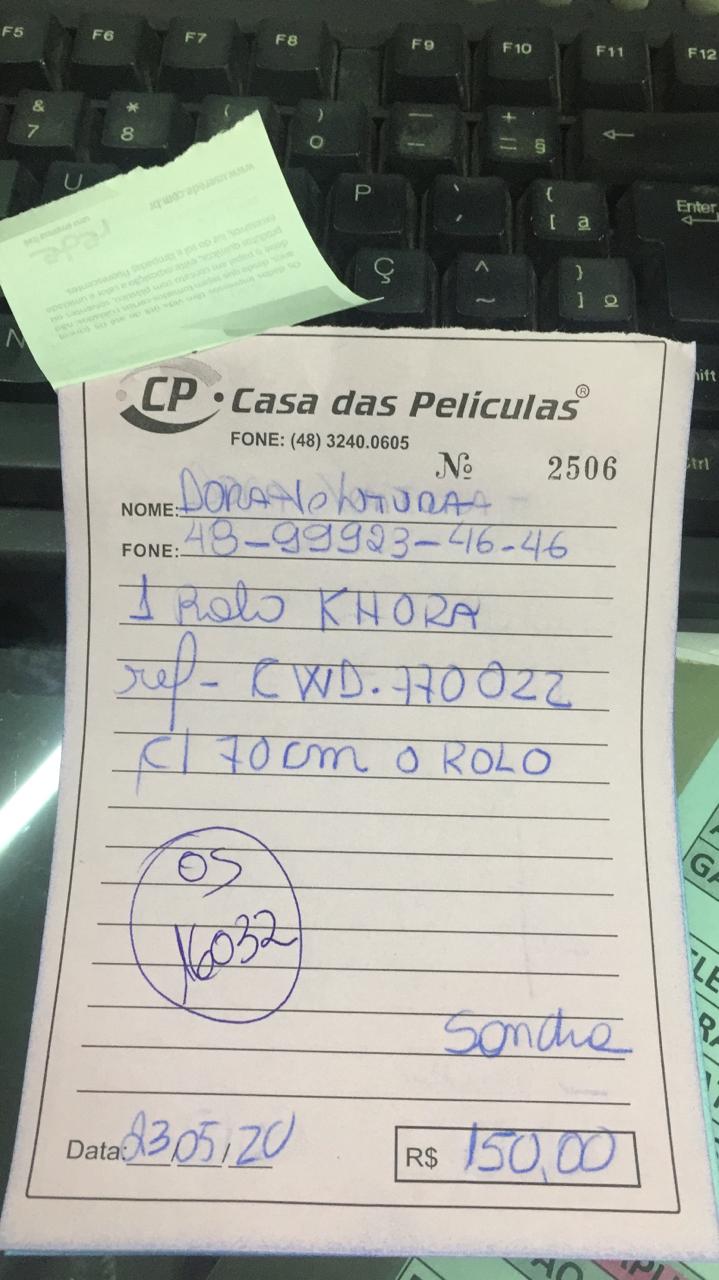 F5 F6 F7 F8 F9 F10 F11 F12
& 7 * 8 ( ) 0 — + = §
U P { [ ª Enter
Ç ^ ~ } ] º
N
www.userede.com.br
rede
CP Casa das Películas®
FONE: (48) 3240.0605
Nº 2506
NOME:
FONE: 48-99923-46-46
1 Rolo KHORA
ref- CWD.770022
c/ 70cm o ROLO
OS
16032
Sandra
Data: 23/05/20
R$ 150,00